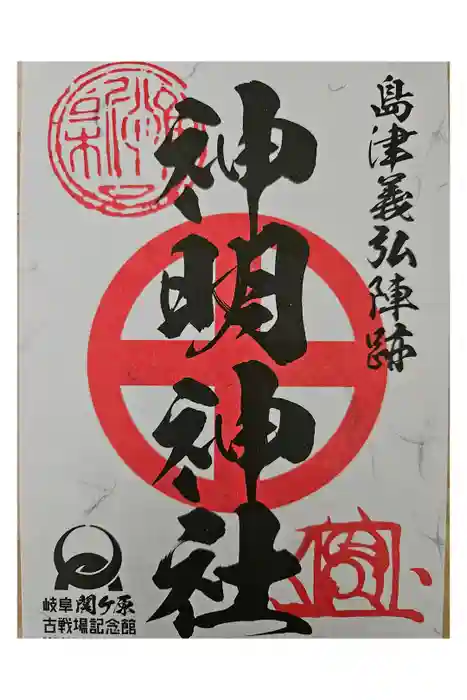 島津義弘陣跡
神明神社
岐阜関ケ原
古戦場記念館